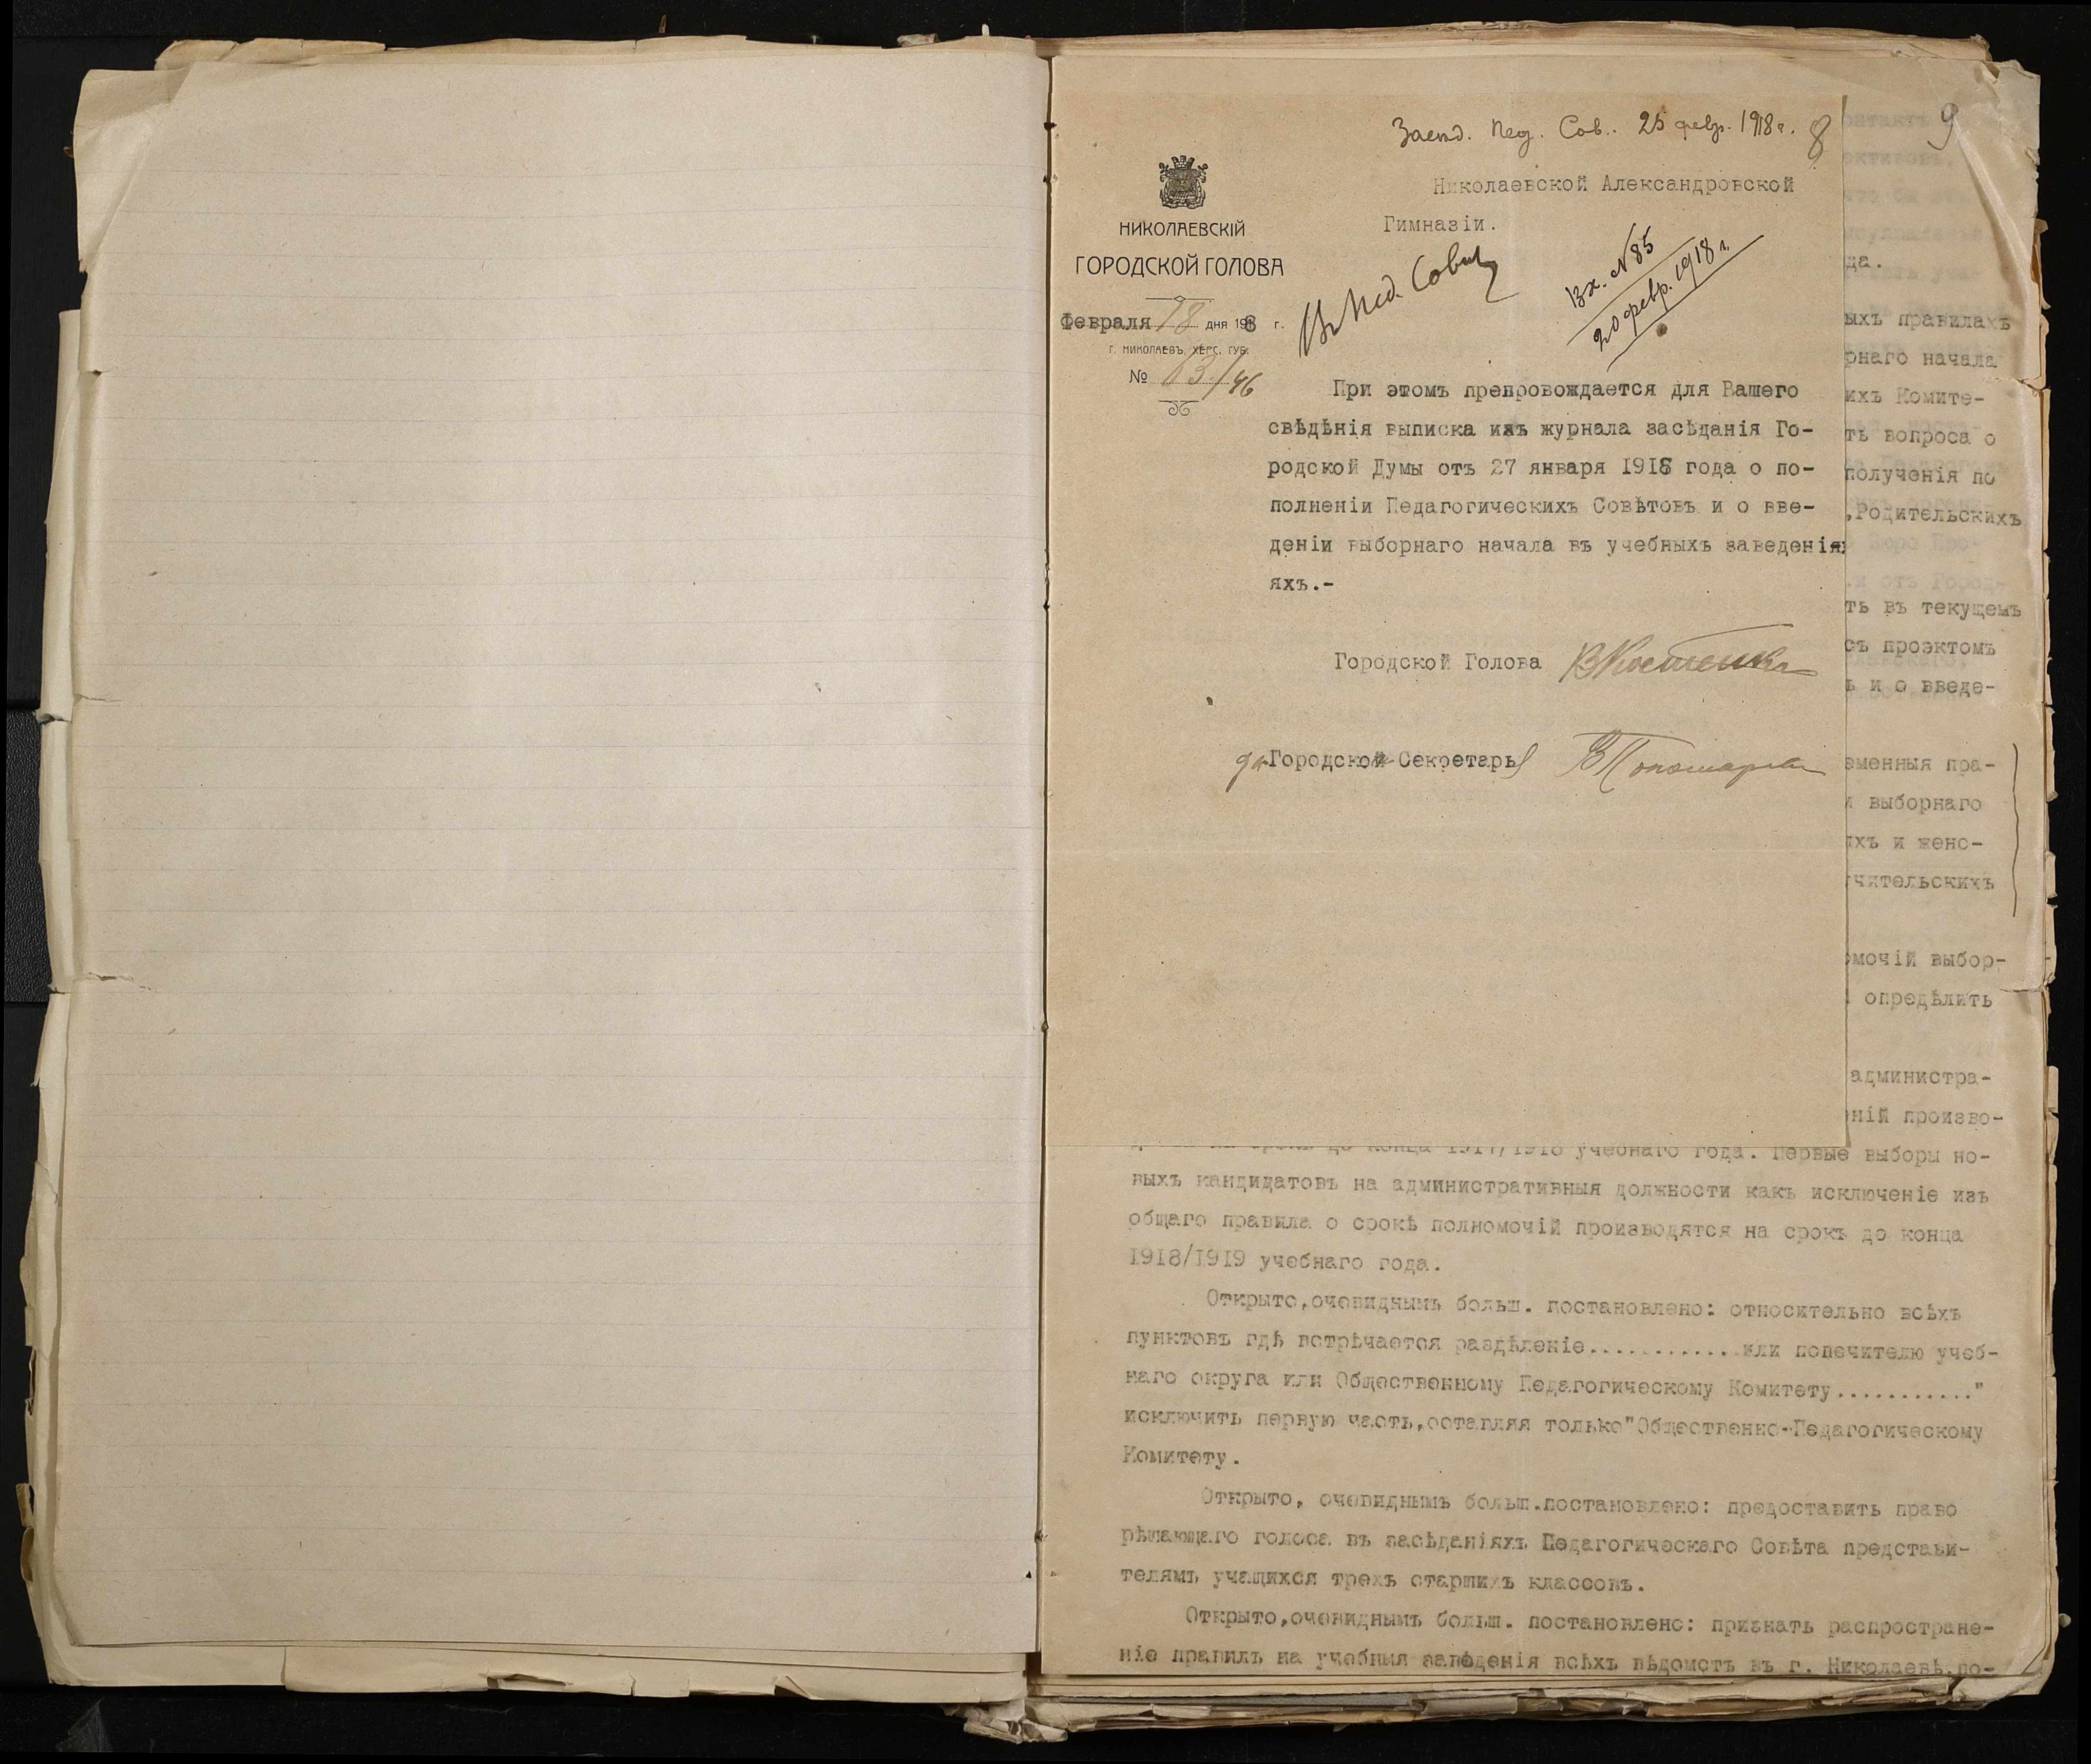 Засѣд. Пед. Сов. 25 февр. 1918 г. 8
9
Николаевской Александровской
Гимназіи.
НИКОЛАЕВСКІЙ
ГОРОДСКОЙ ГОЛОВА
Февраля 18 дня 1918 г.
Г. НИКОЛАЕВЪ, ХЕРС. ГУБ.
№ 63/46
Въ Пед. Совѣтъ
Вх. № 85
20 февр. 1918 г.
При этомъ препровождается для Вашего
свѣдѣнія выписка изъ журнала засѣданія Го-
родской Думы отъ 27 января 1918 года о по-
полненіи Педагогическихъ Совѣтовъ и о вве-
деніи выборнаго начала въ учебныхъ заведенія
яхъ.-
Городской Голова ВКостенко
Городской Секретарь
да.
ыхъ правилахъ
рнаго начала
ихъ Комите-
ть вопроса о
полученія по
,Родительскихъ
ть въ текущемъ
съ проэктомъ
ъ и о введе-
еменныя пра-
и выборнаго
яхъ и женс-
учительскихъ
омочій выбор-
опредѣлить
администра-
еній произво-
до конца 1917/1918 учебнаго года. Первые выборы но-
выхъ кандидатовъ на административныя должности какъ исключеніе изъ
общаго правила о срокѣ полномочій производятся на срокъ до конца
1918/1919 учебнаго года.
Открыто,очевиднымъ больш. постановлено: относительно всѣхъ
пунктовъ гдѣ встрѣчается раздѣленіе............или попечителю учеб-
наго округа или Общественному Педагогическому Комитету..........."
исключить первую часть,оставляя только"Общественно-Педагогическому
Комитету.
Открыто, очевиднымъ больш.постановлено: предоставить право
рѣшающаго голоса въ засѣданіяхъ Педагогическаго Совѣта представи-
телямъ учащихся трехъ старшихъ классовъ.
Открыто,очевиднымъ больш. постановлено: признать распростране-
ніе правилъ на учебныя заведенія всѣхъ вѣдомств въ г. Николаевѣ,по-